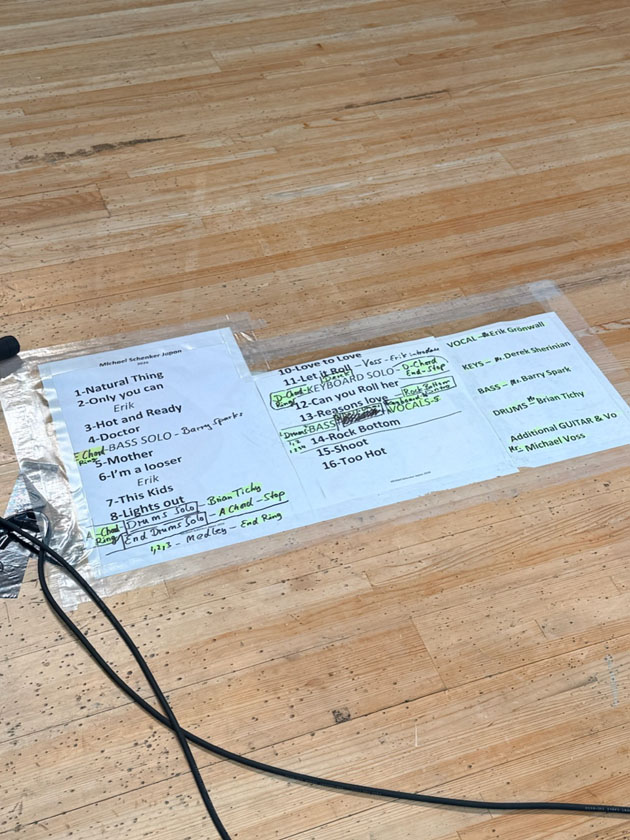 Michael Schenker Japan
1-Natural Thing
2-Only you can
Erik
3-Hot and Ready
4-Doctor
E Chord Ring BASS SOLO - Barry Sparks
5-Mother
6-I'm a looser
Erik
7-This Kids
8-Lights out
A-Chord Ring Drums Solo - Brian Tichy
End Drums Solo - A Chord - Stop
1,2,3 - Medley - End Ring
10-Love to Love
11-Let it Roll - Voss - Erik introduce
D-Chord Ring KEYBOARD SOLO - D-Chord End-Stop
12-Can you Roll her
13-Reasons love Rock Bottom
Drums BASS VOCALS-5
14-Rock Bottom
15-Shoot
16-Too Hot
VOCAL - Mr. Erik Grönwall
KEYS - Mr. Derek Sherinian
BASS - Mr. Barry Spark
DRUMS Mr Brian Tichy
Additional GUITAR & Vo
Mr. Michael Voss